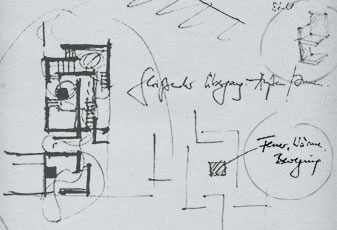 fließender Übergang - Außen/Innen
Feuer, Wärme,
Bewegung